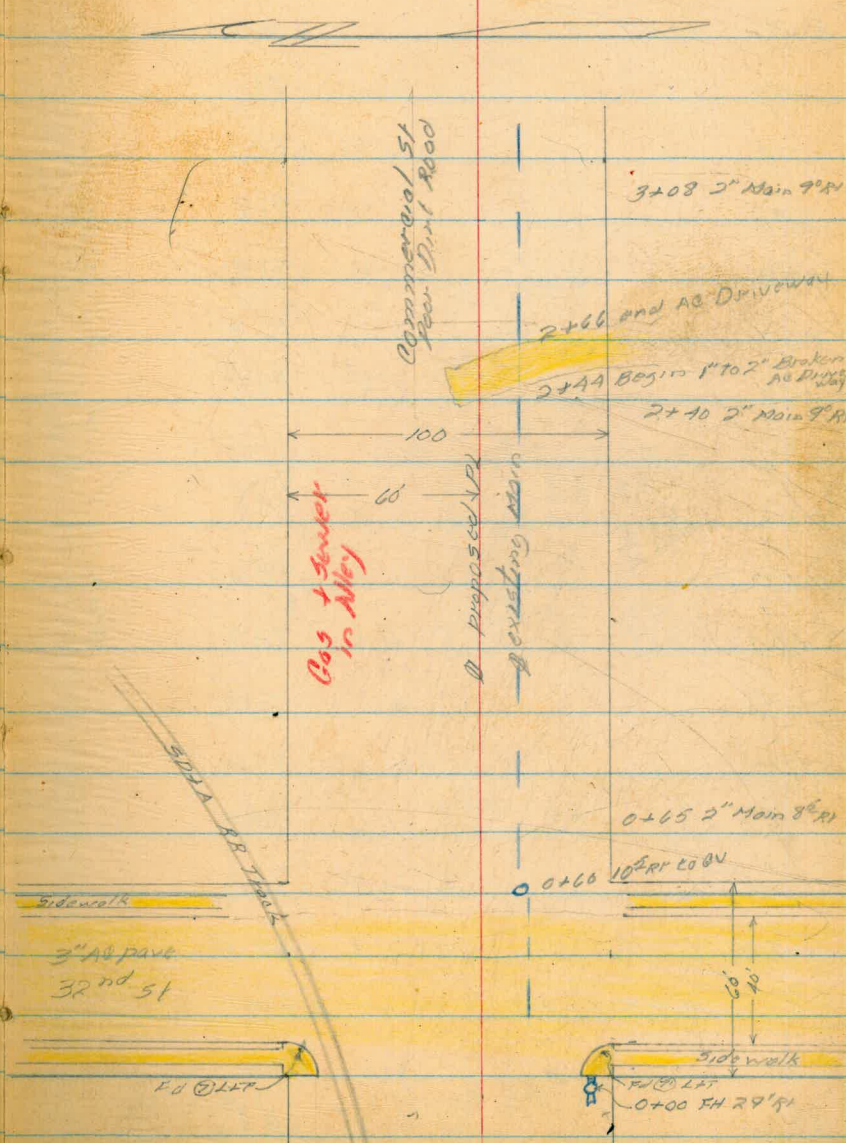 Commercial St
Poor Dirt Road
3+08 2" Main 9° Rt
2+66 end AC Driveway
2+44 Begin 1" to 2" Broken
AC Drive
way
2+40 2" Main 9° Rt
100
60'
proposed PL
existing Main
Gas + Sewer
in Alley
SD+A RR Track
0+65 2" Main 8⁵ Rt
0+60 10⁵ Rt to GV
Sidewalk
3" AC pave
32nd St
60'
40'
Sidewalk
Fd L+T
Fd L+T
0+00 FH 29' Rt